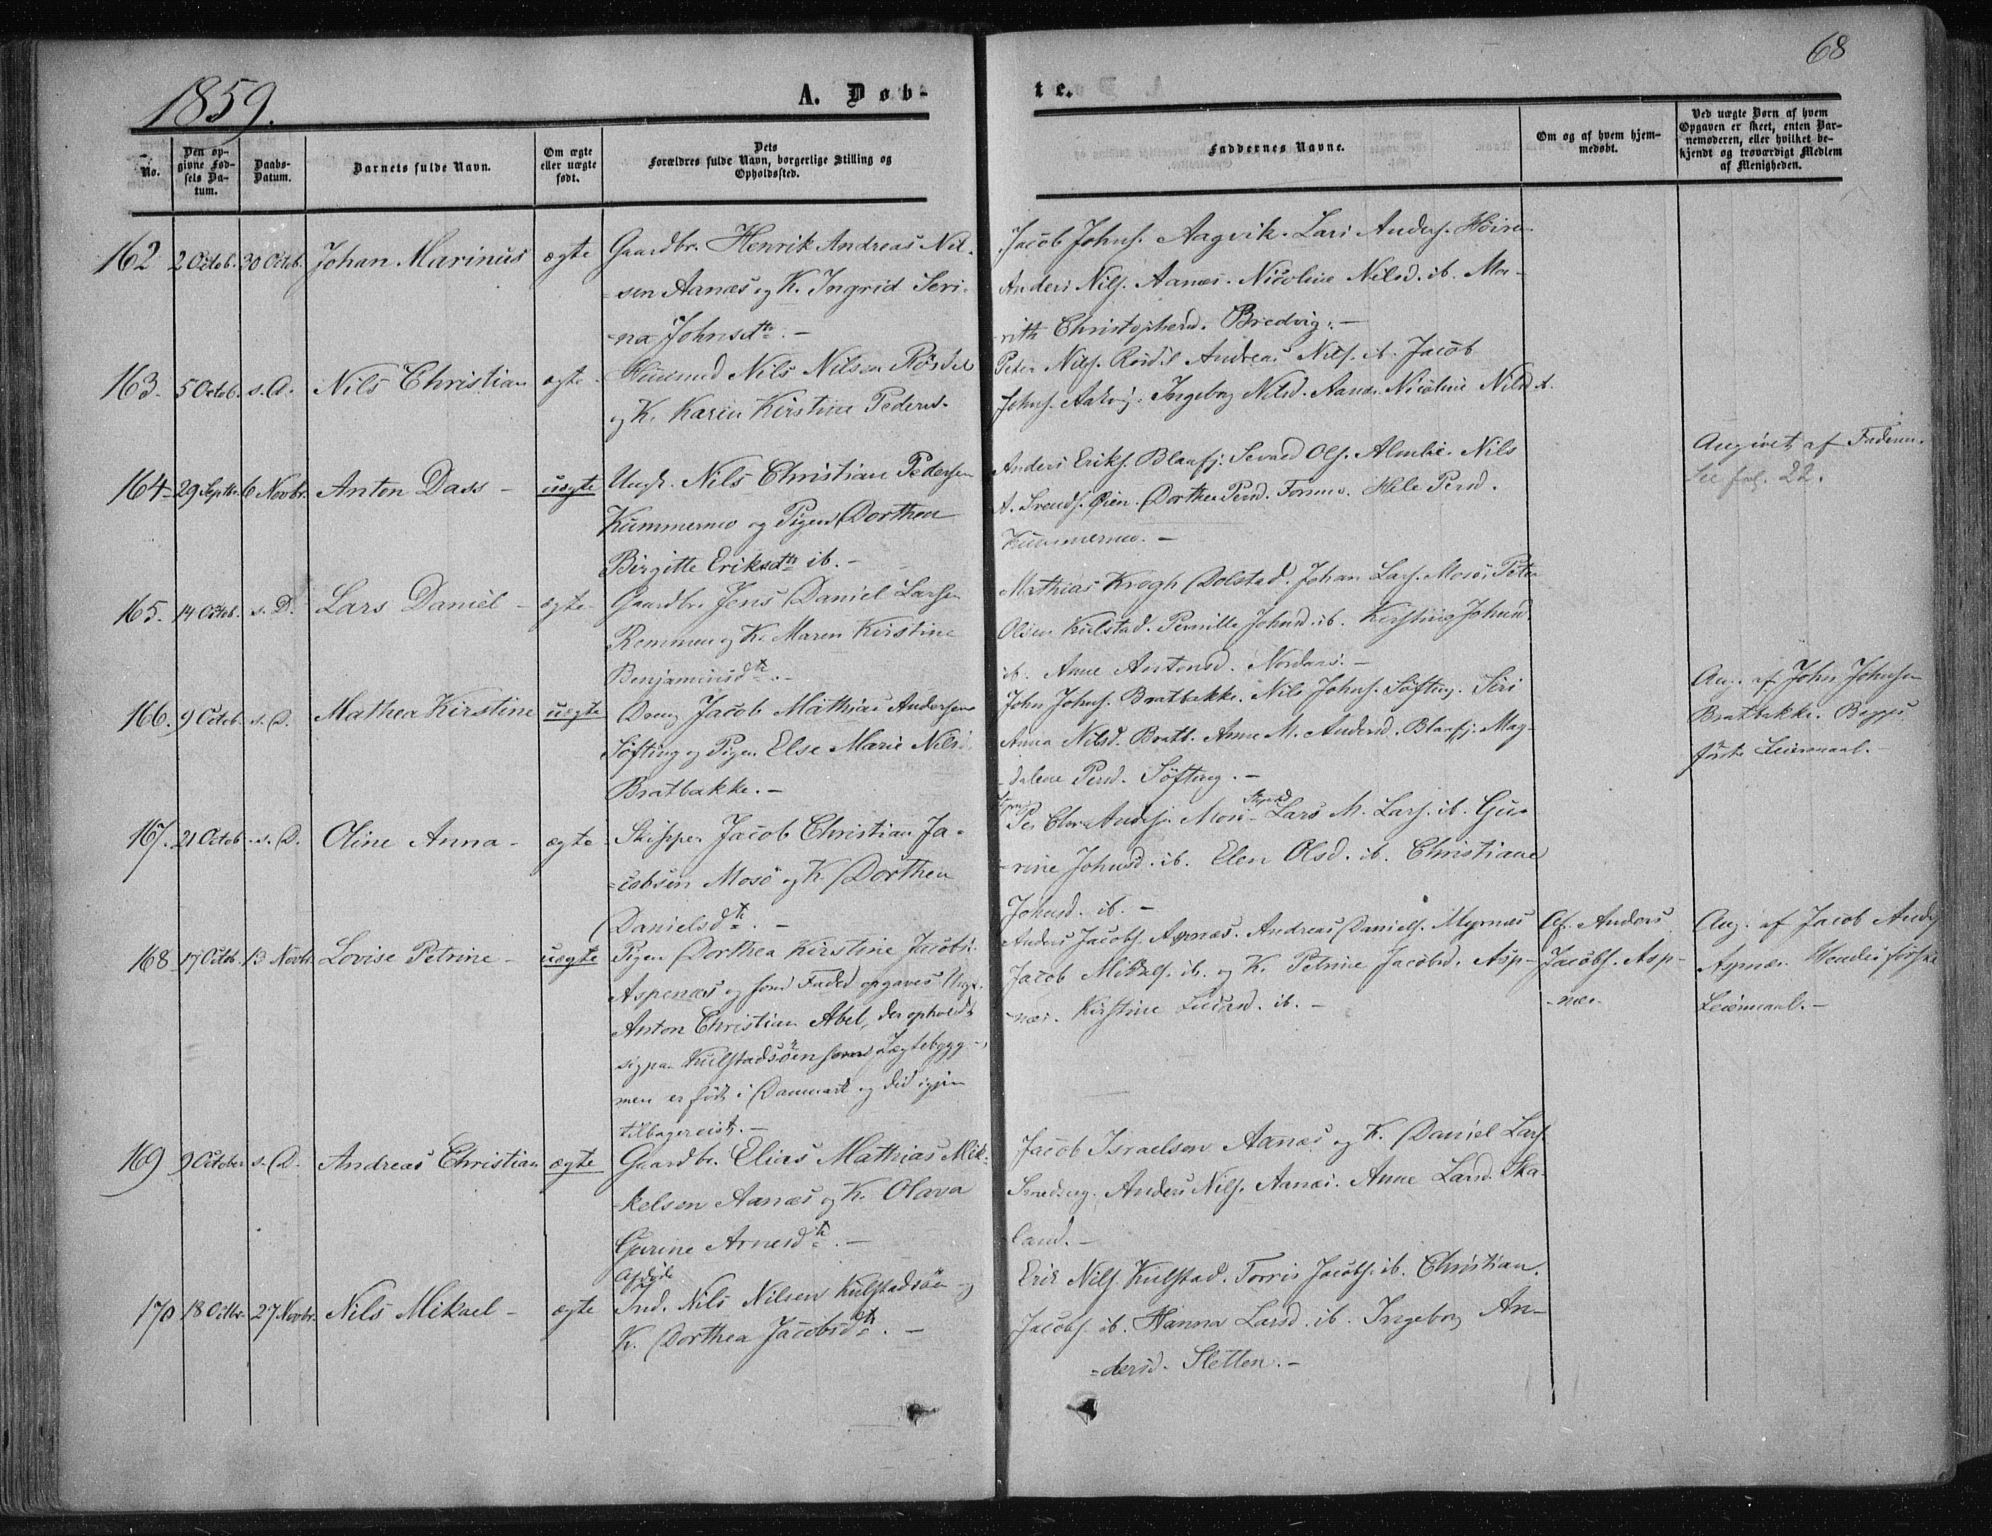 68
1859.
A. Døb-
te.
No.
Den opgivne Fødsels Datum.
Daabs-Datum.
Barnets fulde Navn.
Om ægte eller uægte født.
Dets Forældres fulde Navn, borgerlige Stilling og Opholdssted.
Faddernes Navne.
Om og af hvem hjemmedøbt.
Ved uægte Børn af hvem Opgaven er skeet, enten Barnemoderen, eller hvilket bekjendt og troværdigt Medlem af Menigheden.
162 2 Octob. 30 Octob. Johan Marinus ægte Gaardbr. Henrik Andreas Nil-
sen Aanæs og K. Ingrid Seri-
na Johnsdtr. -
Jacob Johns. Aagvik. Lars Anders. Høire
Anders Nils. Aanæs. Nicoline Nilsd. ib. Ma-
rith Christophersd. Bredvig. -
163. 5 Octob. s. D. Nils Christian ægte Huusmd Nils Nilsen Røsdal
og K. Karen Kirstine Pedersd.
Peter Nils. Røsdal Andreas Nils. ib. Jacob
Johns. Aakvig. Ingeborg Nilsd. Aanæs. Nicoline Nilsd. ib.
164 29 Septbr. 6 Novbr. Anton Dass - uægte Ungk. Nils Christian Pedersen
Kummermo og Pigen Dorthea
Birgitte Eriksdtr ib. -
Anders Eriks. Blaafj. Sevard Ols. Almlie. Nils
A. Svends. Øien. Dorthea Persd. Formo. Hele Persd.
Kummermo. -
Angivet af Faderen.
See fol. 22.
165. 14 Octob. s. D. Lars Daniel - ægte Gaardbr. Jens Daniel Larsen
Remmen og K. Maren Kirstine
Benjaminsdtr. -
Mathias Krogh Dolstad. Johan Lars. Mosø. Peter
Olsen Kulstad. Pernille Johnsd. ib. Kirstine Johnsd.
ib. Anne Antonsd. Nordaas. -
166. 9 Octob. s. D. Mathea Kirstine uægte Dreng Jacob Mathias Andersen
Søfting og Pigen Else Marie Nilsd.
Bratbakke. -
John Johns. Bratbakke. Nils Johns. Søfting. Siri
Anna Nilsd. Bratb. Anne M. Andersd. Blaafj. Mag-
dalene Persd. Søfting. -
Ang. af John Johnsen
Bratbakke. Begges
første Leiermaal. -
167. 21 Octob. s. D. Oline Anna - ægte Skipper Jacob Christian Ja-
cobsen Mosø og K. Dorthea
Danielsdtr. -
Anders. Mosø Lars M. Lars. ib. Gu-
rine Johnsd. ib. Elen Olsd. ib. Christiane
Johnsd. ib. -
168 17 Octob. 13 Novbr. Lovise Petrine - uægte Pigen Dorthea Kirstine Jacobs.
Aspenæs og som Fader opgaves Ungk.
Anton Christian Abel, der opholdt
sig paa Kulstadsøen som Jægtebygg-,
men er født i Danmark og did igjen
tilbagereist. -
Anders Jacobs. Aspnæs. Andreas Daniels. Myrnæs
Jacob Mikkels. ib. og K. Petrine Jacobsd. Asp-
næs. Kirstine Lucasd. ib. -
Af Anders
Jacobs. Asp-
næs.
Ang. af Jacob Anders
Aspnæs. Hendes første
Leiermaal. -
169 9 October s. D. Andreas Christian ægte Gaardbr. Elias Mathias Mik-
kelsen Aanæs og K. Olava
Gurine Arnesdtr. -
Jacob Israelsen Aanæs og K. Daniel Lars.
Smedseng. Anders Nils. Aanæs. Anne Larsd. Ska-
land. -
170 18 Octbr. 27 Novbr. Nils Mikael - ægte Afdøde
Ind. Nils Nilsen Kulstadsøen og
K. Dorthea Jacobsdtr. -
Erik Nils. Kulstad. Torris Jacobs. ib. Christian
Jacobs. ib. Hanna Larsd. ib. Ingeborg An-
dersd. Sletten. -